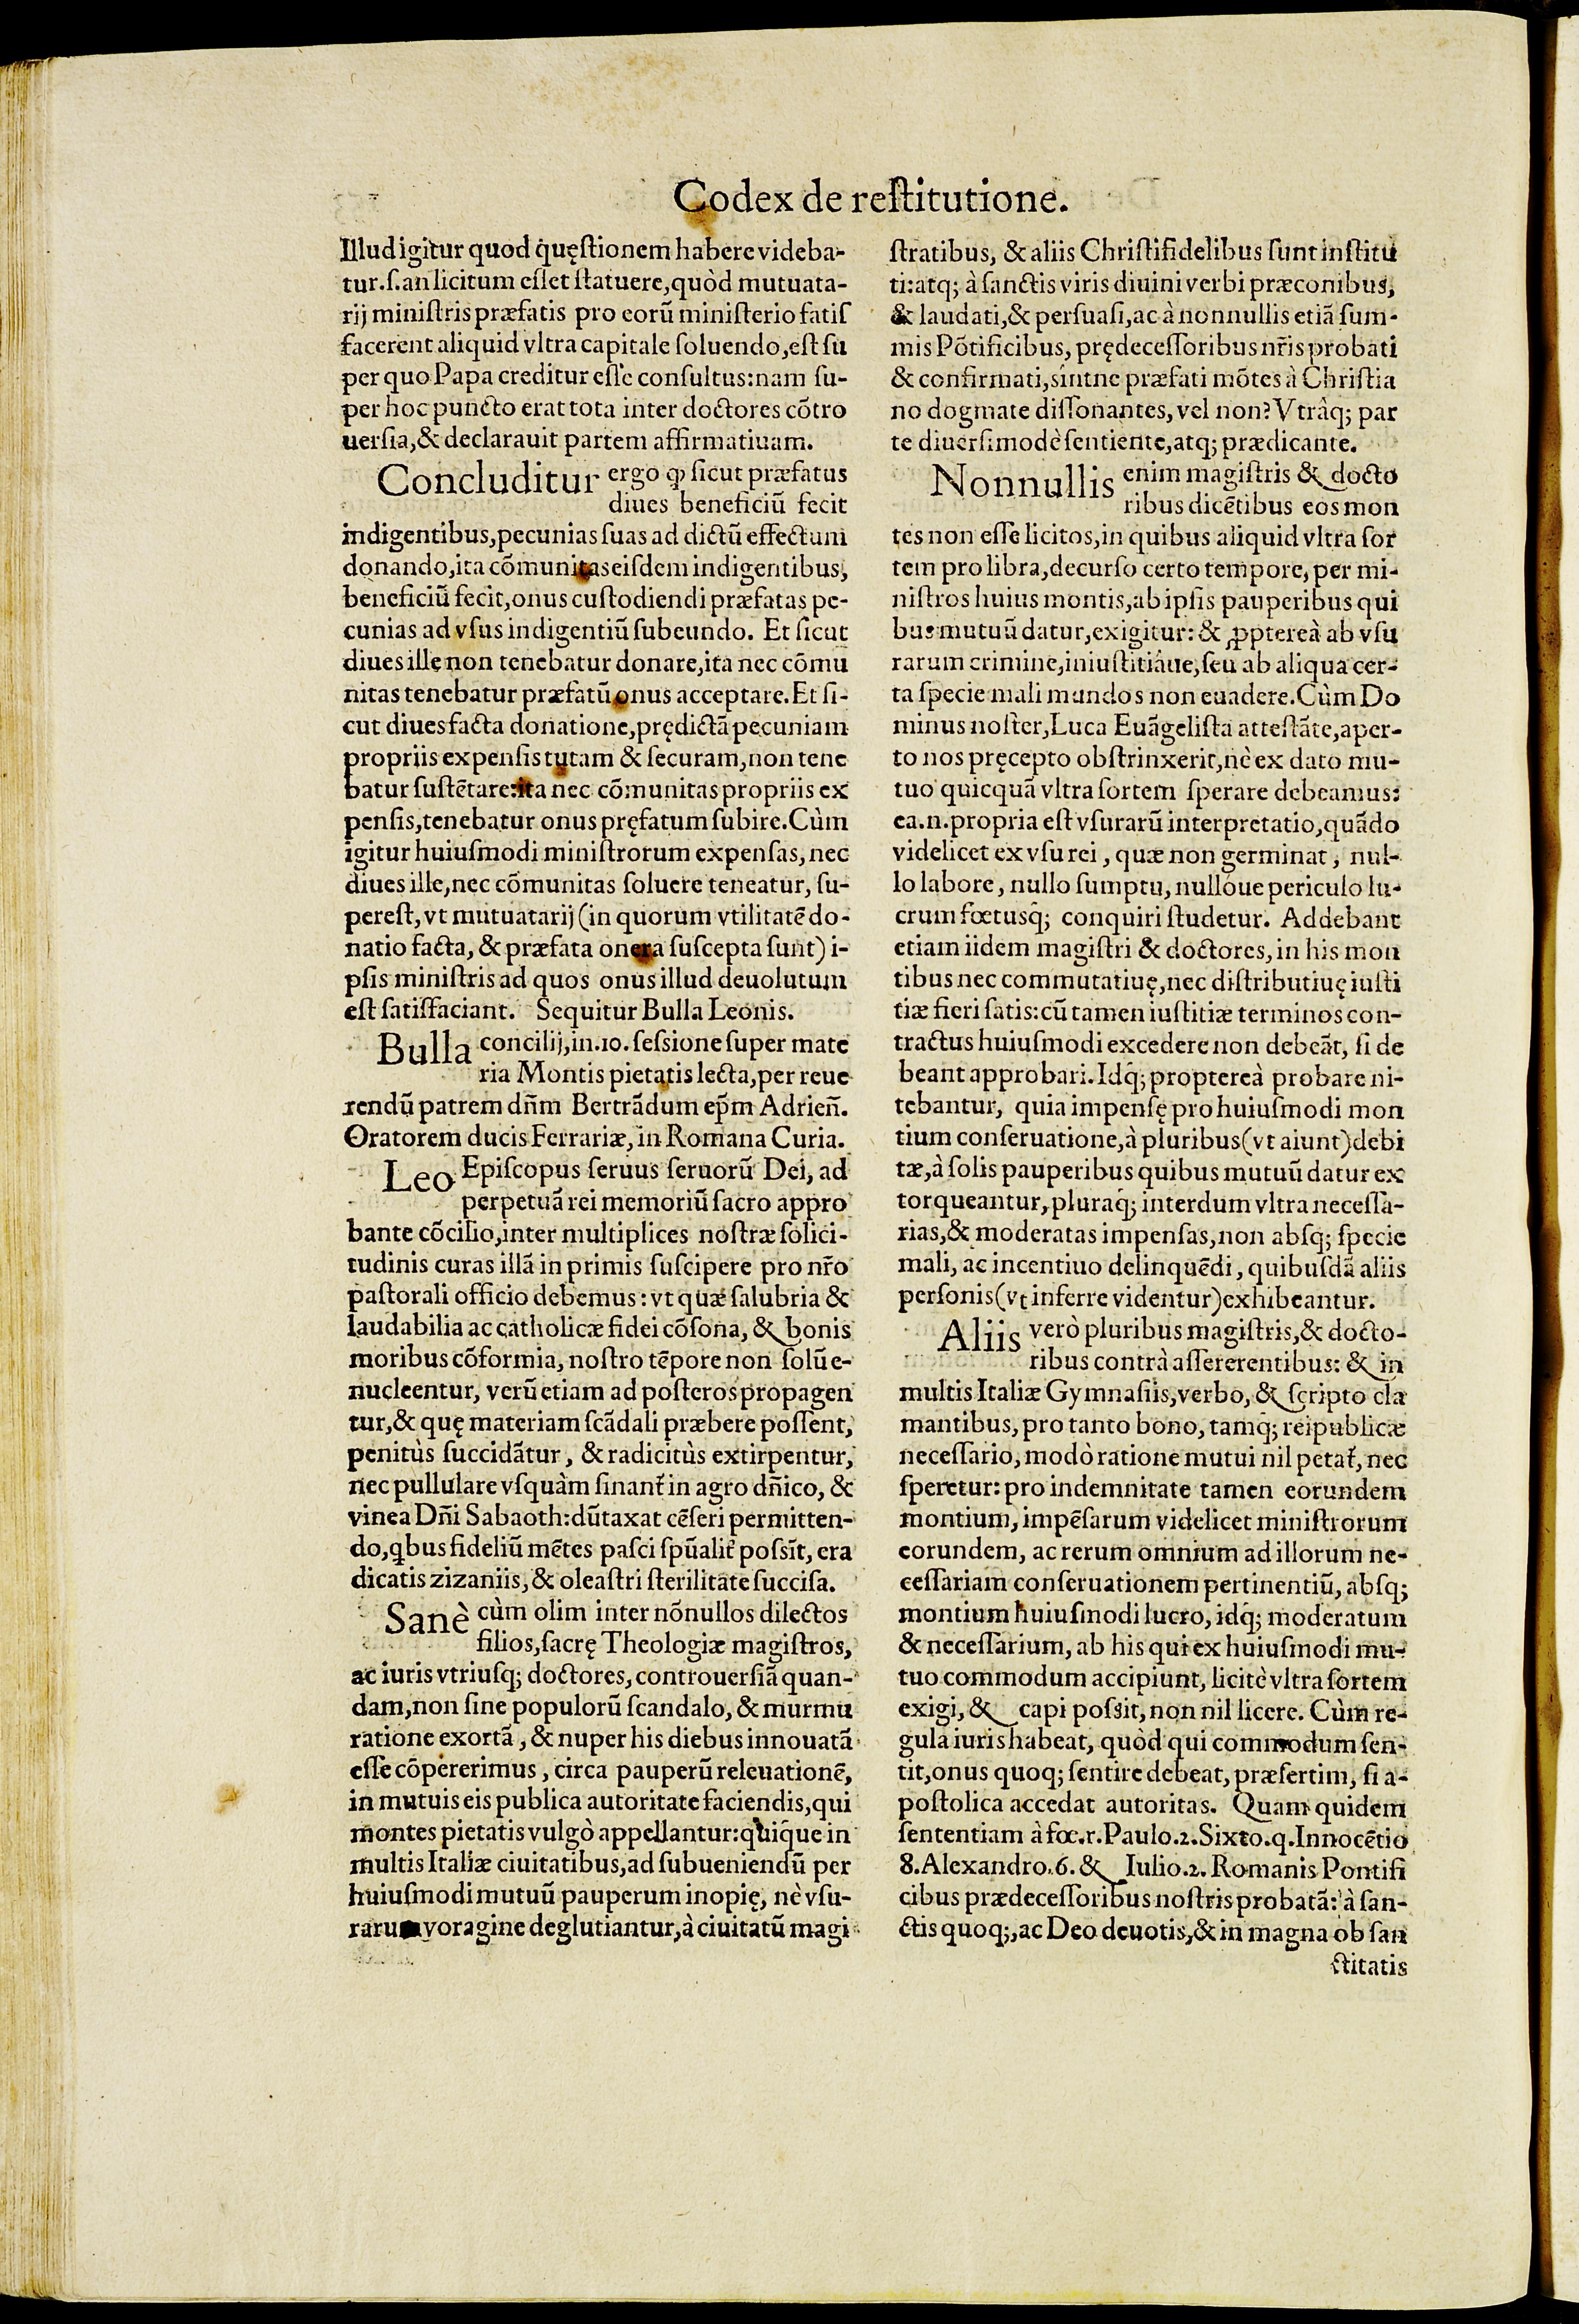 Codex de reſtitutione.
Illud igitur quod quęſtionem habere videba-
tur. ſ. an licitum eſſet ſtatuere, quòd mutuata-
rij miniſtris præfatis pro eorũ miniſterio ſatiſ
facerent aliquid vltra capitale ſoluendo, eſt ſu
per quo Papa creditur eſſe conſultus: nam ſu-
per hoc puncto erat tota inter doctores cõtro
uerſia, & declarauit partem affirmatiuam.
Concluditur ergo ꝙ ſicut præfatus
diues beneficiũ fecit
indigentibus, pecunias ſuas ad dictũ effectum
donando, ita cõmunitas eiſdem indigentibus,
beneficiũ fecit, onus cuſtodiendi præfatas pe-
cunias ad vſus indigentiũ ſubeundo. Et ſicut
diues ille non tenebatur donare, ita nec cõmu
nitas tenebatur præfatũ onus acceptare. Et ſi-
cut diues facta donatione, prędictã pecuniam
propriis expenſis tutam & ſecuram, non tene
batur ſuſtẽtare: ita nec cõmunitas propriis ex
penſis, tenebatur onus pręfatum ſubire. Cùm
igitur huiuſmodi miniſtrorum expenſas, nec
diues ille, nec cõmunitas ſoluere teneatur, ſu-
pereſt, vt mutuatarij (in quorum vtilitatẽ do-
natio facta, & præfata onera ſuſcepta ſunt) i-
pſis miniſtris ad quos onus illud deuolutum
eſt ſatisfaciant. Sequitur Bulla Leonis.
Bulla concilij, in. 10. ſeſſione ſuper mate
ria Montis pietatis lecta, per reue
rendũ patrem dñm Bertrãdum ep̃m Adrieñ.
Oratorem ducis Ferrariæ, in Romana Curia.
Leo Epiſcopus ſeruus ſeruorũ Dei, ad
perpetuã rei memoriũ ſacro appro
bante cõcilio, inter multiplices noſtræ ſolici-
tudinis curas illã in primis ſuſcipere pro nr̃o
paſtorali officio debemus: vt quæ ſalubria &
laudabilia ac catholicæ fidei cõſona, & bonis
moribus cõformia, noſtro tẽpore non ſolũ e-
nucleentur, verũ etiam ad poſteros propagen
tur, & quę materiam ſcãdali præbere poſſent,
penitùs ſuccidãtur, & radicitùs extirpentur,
nec pullulare vſquàm ſinant̃ in agro dñico, &
vinea Dñi Sabaoth: dũtaxat cẽſeri permitten-
do, q̃bus fideliũ mẽtes paſci ſpũalit̃ poſſĩt, era
dicatis zizaniis, & oleaſtri ſterilitate ſucciſa.
Sanè cùm olim inter nõnullos dilectos
filios, ſacrę Theologiæ magiſtros,
ac iuris vtriuſq; doctores, controuerſiã quan-
dam, non ſine populorũ ſcandalo, & murmu
ratione exortã, & nuper his diebus innouatã
eſſe cõpererimus, circa pauperũ releuationẽ,
in mutuis eis publica autoritate faciendis, qui
montes pietatis vulgò appellantur: quiq̃ue in
multis Italiæ ciuitatibus, ad ſubueniendũ per
huiuſmodi mutuũ pauperum inopię, nè vſu-
rarum voragine deglutiantur, à ciuitatũ magi
ſtratibus, & aliis Chriſtifidelibus ſunt inſtitu
ti: atq; à ſanctis viris diuini verbi præconibus,
& laudati, & perſuaſi, ac à nonnullis etiã ſum-
mis Põtificibus, prędeceſſoribus nr̃is probati
& confirmati, ſintne præfati mõtes à Chriſtia
no dogmate diſſonantes, vel non? Vtrâq; par
te diuerſimodè ſentiente, atq; prædicante.
Nonnullis enim magiſtris & docto
ribus dicẽtibus eos mon
tes non eſſe licitos, in quibus aliquid vltra ſor
tem pro libra, decurſo certo tempore, per mi-
niſtros huius montis, ab ipſis pauperibus qui
bus mutuũ datur, exigitur: & ꝓptereà ab vſu
rarum crimine, iniuſtitiâue, ſeu ab aliqua cer-
ta ſpecie mali mundos non euadere. Cùm Do
minus noſter, Luca Euãgeliſta atteſtãte, aper-
to nos pręcepto obſtrinxerit, nè ex dato mu-
tuo quicquã vltra ſortem ſperare debeamus:
ea. n. propria eſt vſurarũ interpretatio, quãdo
videlicet ex vſu rei, quæ non germinat, nul-
lo labore, nullo ſumptu, nullóue periculo lu-
crum fœtusq́; conquiri ſtudetur. Addebant
etiam iidem magiſtri & doctores, in his mon
tibus nec commutatiuę, nec diſtributiuę iuſti
tiæ fieri ſatis: cũ tamen iuſtitiæ terminos con-
tractus huiuſmodi excedere non debeãt, ſi de
beant approbari. Idq́; proptereà probare ni-
tebantur, quia impenſę pro huiuſmodi mon
tium conſeruatione, à pluribus (vt aiunt) debi
tæ, à ſolis pauperibus quibus mutuũ datur ex
torqueantur, pluraq́; interdum vltra neceſſa-
rias, & moderatas impenſas, non abſq; ſpecie
mali, ac incentiuo delinquẽdi, quibuſdã aliis
perſonis (vt inferre videntur) exhibeantur.
Aliis verò pluribus magiſtris, & docto-
ribus contrà aſſererentibus: & in
multis Italiæ Gymnaſiis, verbo, & ſcripto cla
mantibus, pro tanto bono, tamq́; reipublicæ
neceſſario, modò ratione mutui nil petat̃, nec
ſperetur: pro indemnitate tamen eorundem
montium, impẽſarum videlicet miniſtrorum
eorundem, ac rerum omnium ad illorum ne-
ceſſariam conſeruationem pertinentiũ, abſq;
montium huiuſmodi lucro, idq́; moderatum
& neceſſarium, ab his qui ex huiuſmodi mu-
tuo commodum accipiunt, licitè vltra ſortem
exigi, & capi poſſit, non nil licere. Cùm re-
gula iuris habeat, quòd qui commodum ſen-
tit, onus quoq; ſentire debeat, præſertim, ſi a-
poſtolica accedat autoritas. Quam quidem
ſententiam à fœ. r. Paulo. 2. Sixto. q. Innocẽtio
8. Alexandro. 6. & Iulio. 2. Romanis Pontifi
cibus prædeceſſoribus noſtris probatã: à ſan-
ctis quoq;, ac Deo deuotis, & in magna ob ſan
ctitatis